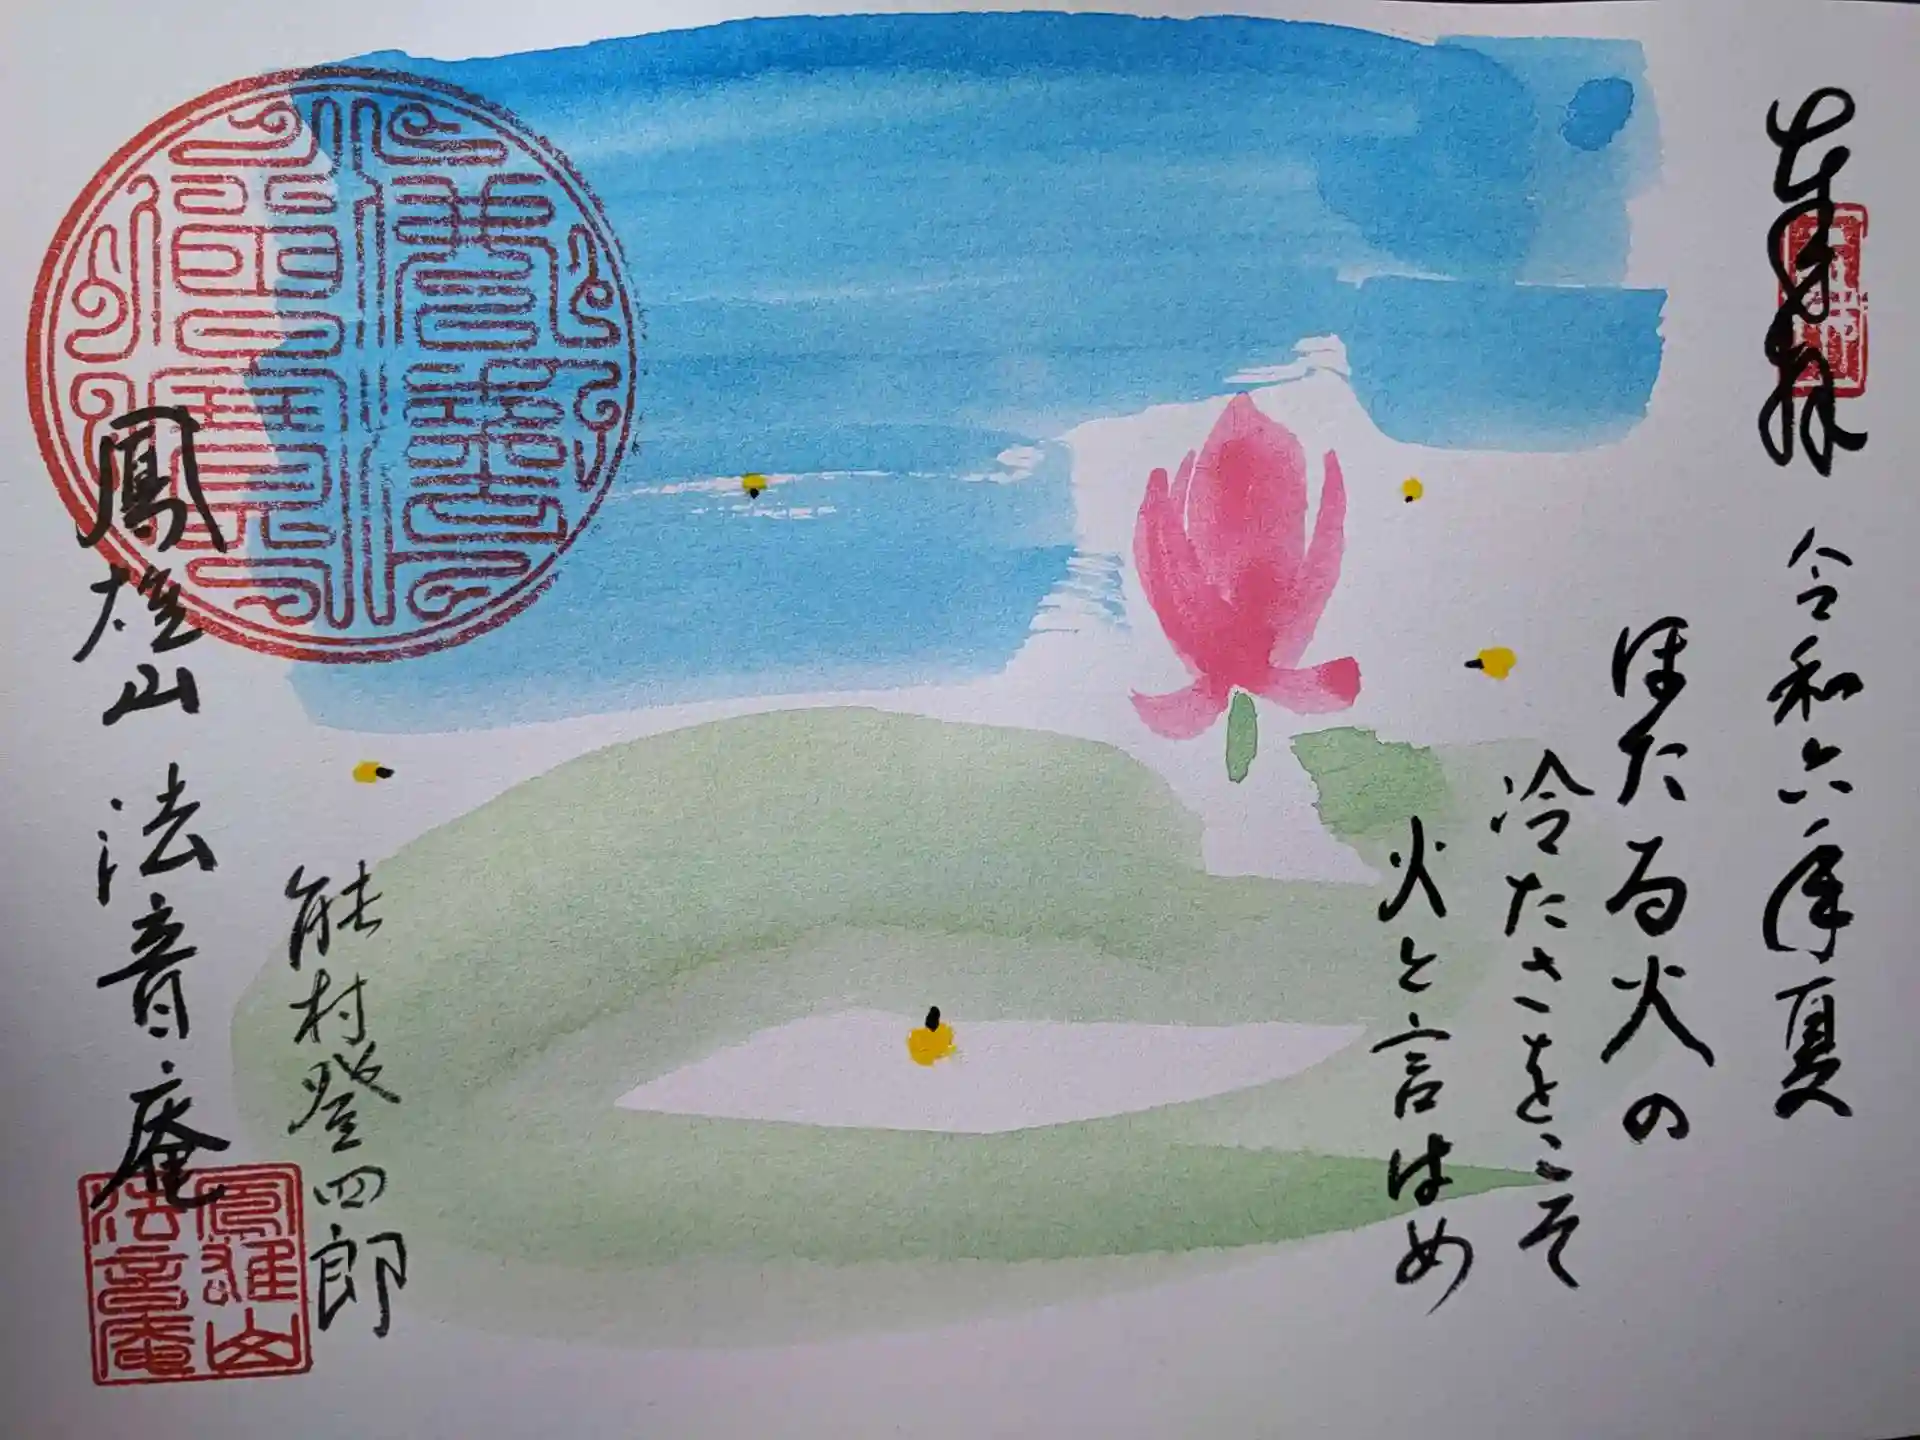 奉拝
令和六年夏
ほたる火の
冷たさをこそ
火と言はめ
能村登四郎
鳳雄山 法音庵
鳳雄山
法音庵